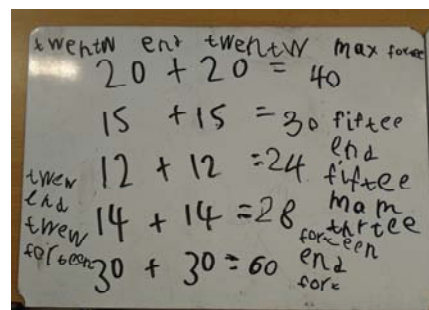 twentw end twentw max fortee
20 + 20 = 40
15 + 15 = 30 fiftee
end
twew 12 + 12 = 24 fiftee
end mam
twew 14 + 14 = 28 thrtee
forteen forteen
30 + 30 = 60 end
fort